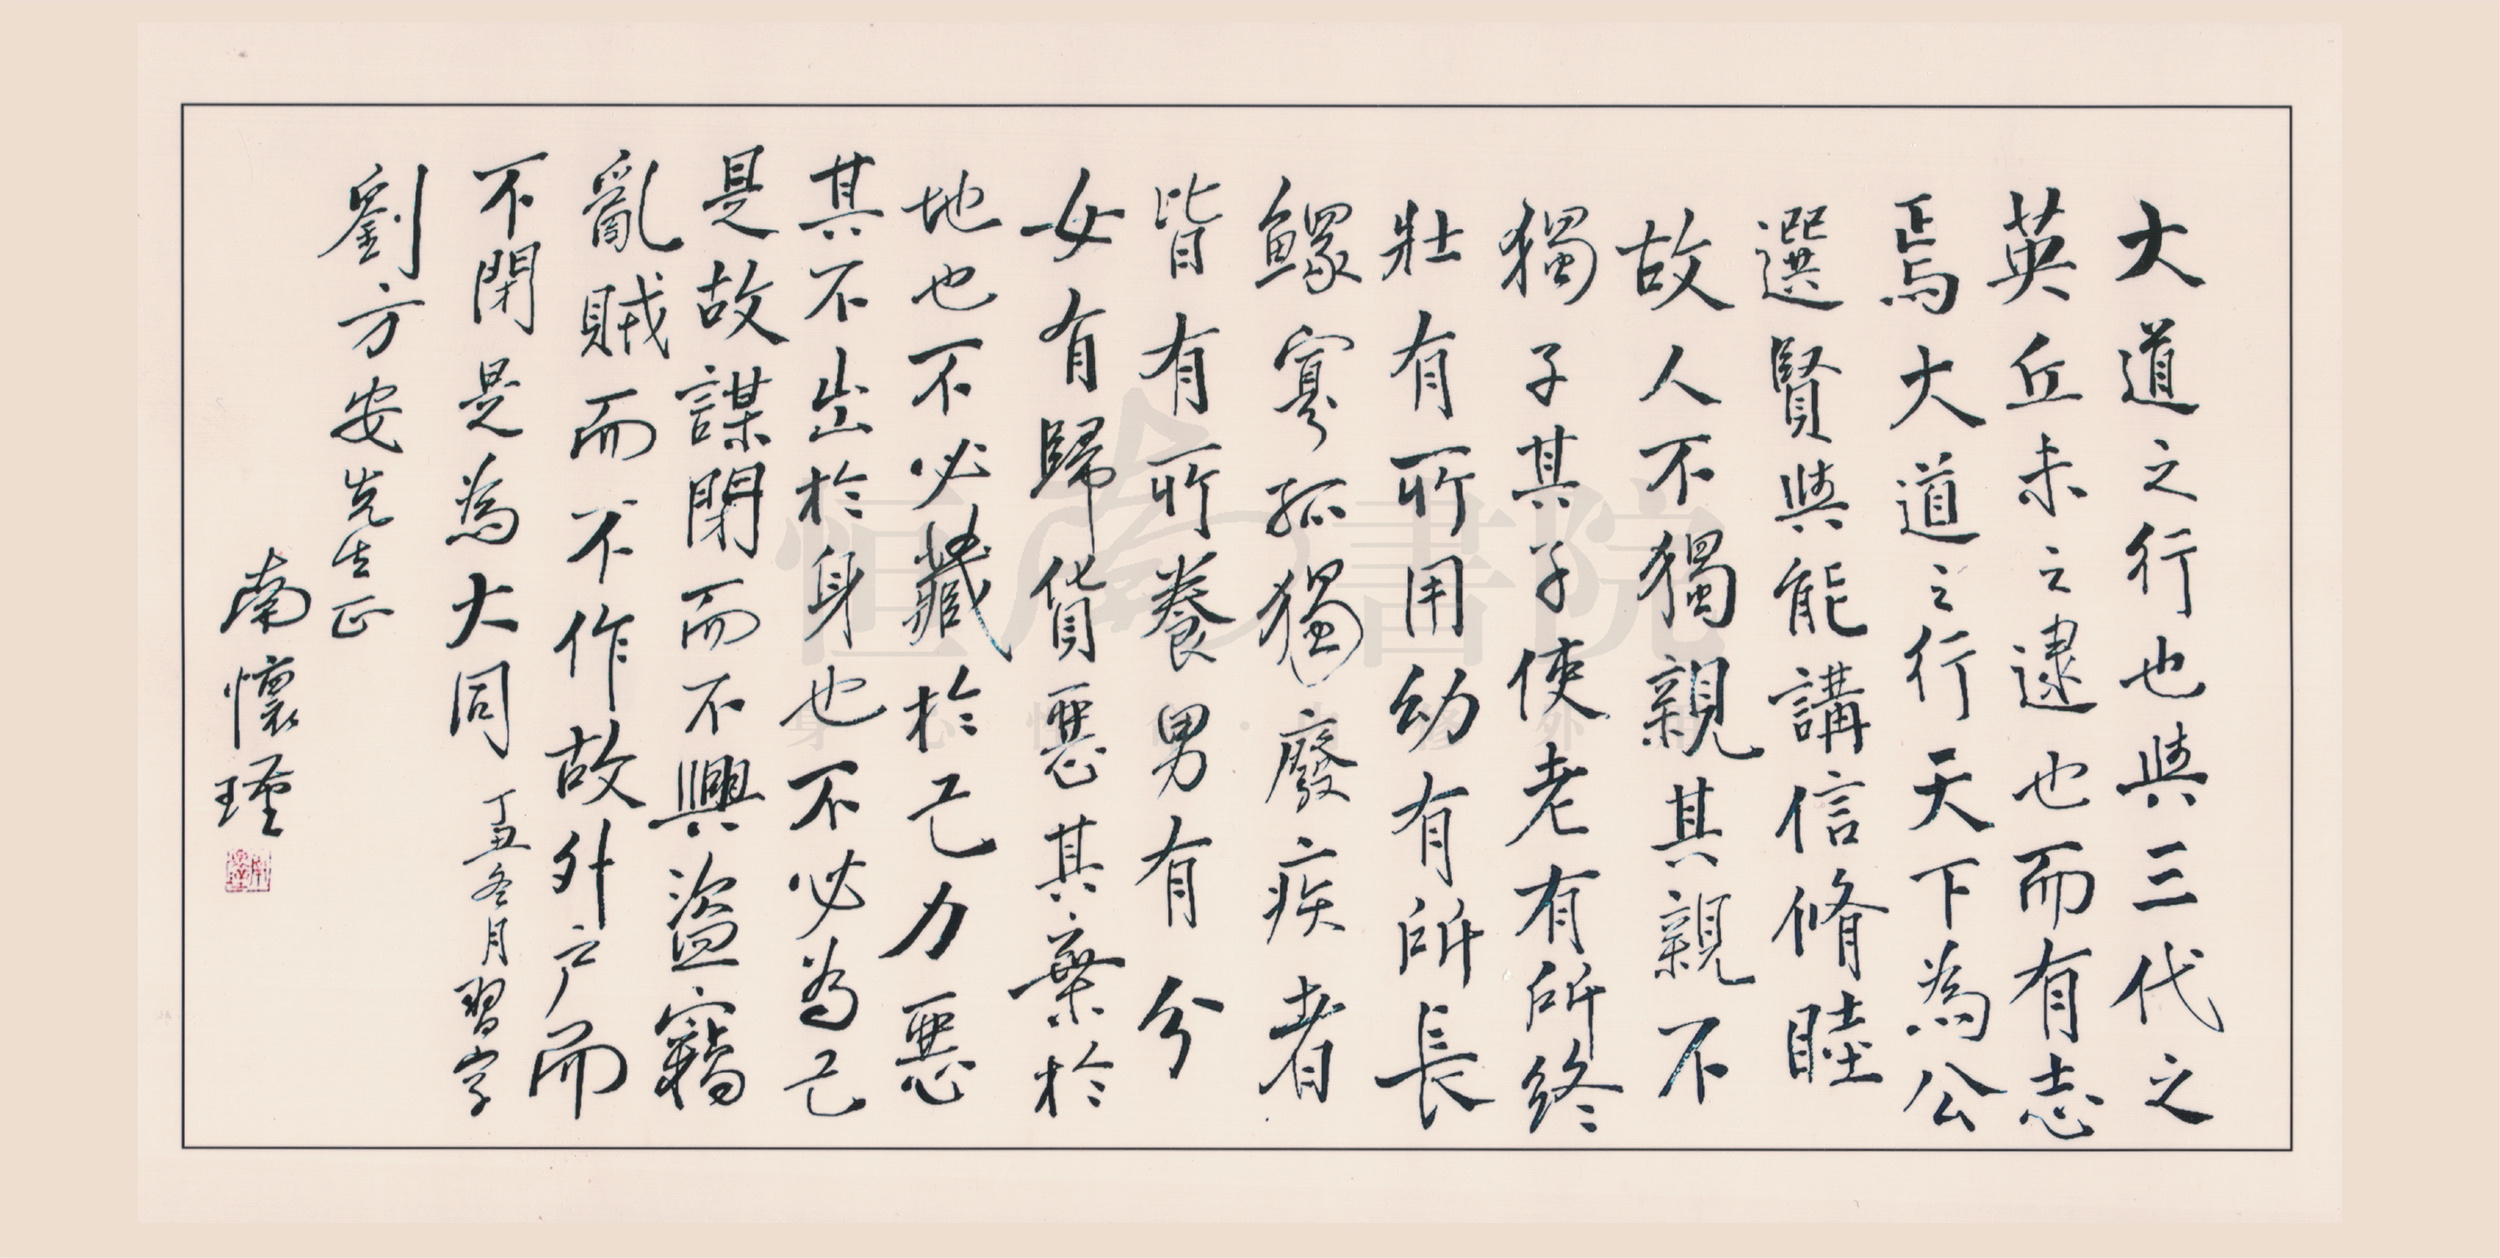 大道之行也與三代之
英丘未之逮也而有志
焉大道之行天下為公
選賢與能講信脩睦
故人不獨親其親不
獨子其子使老有所終
壯有所用幼有所長
鰥寡孤獨廢疾者
皆有所養男有分
女有歸貨惡其棄於
地也不必藏於己力惡
其不出於身也不必為己
是故謀閉而不興盜竊
亂賊而不作故外户而
不閉是為大同 丁丑冬月習字
劉方安先生正
南懷瑾
恒南書院